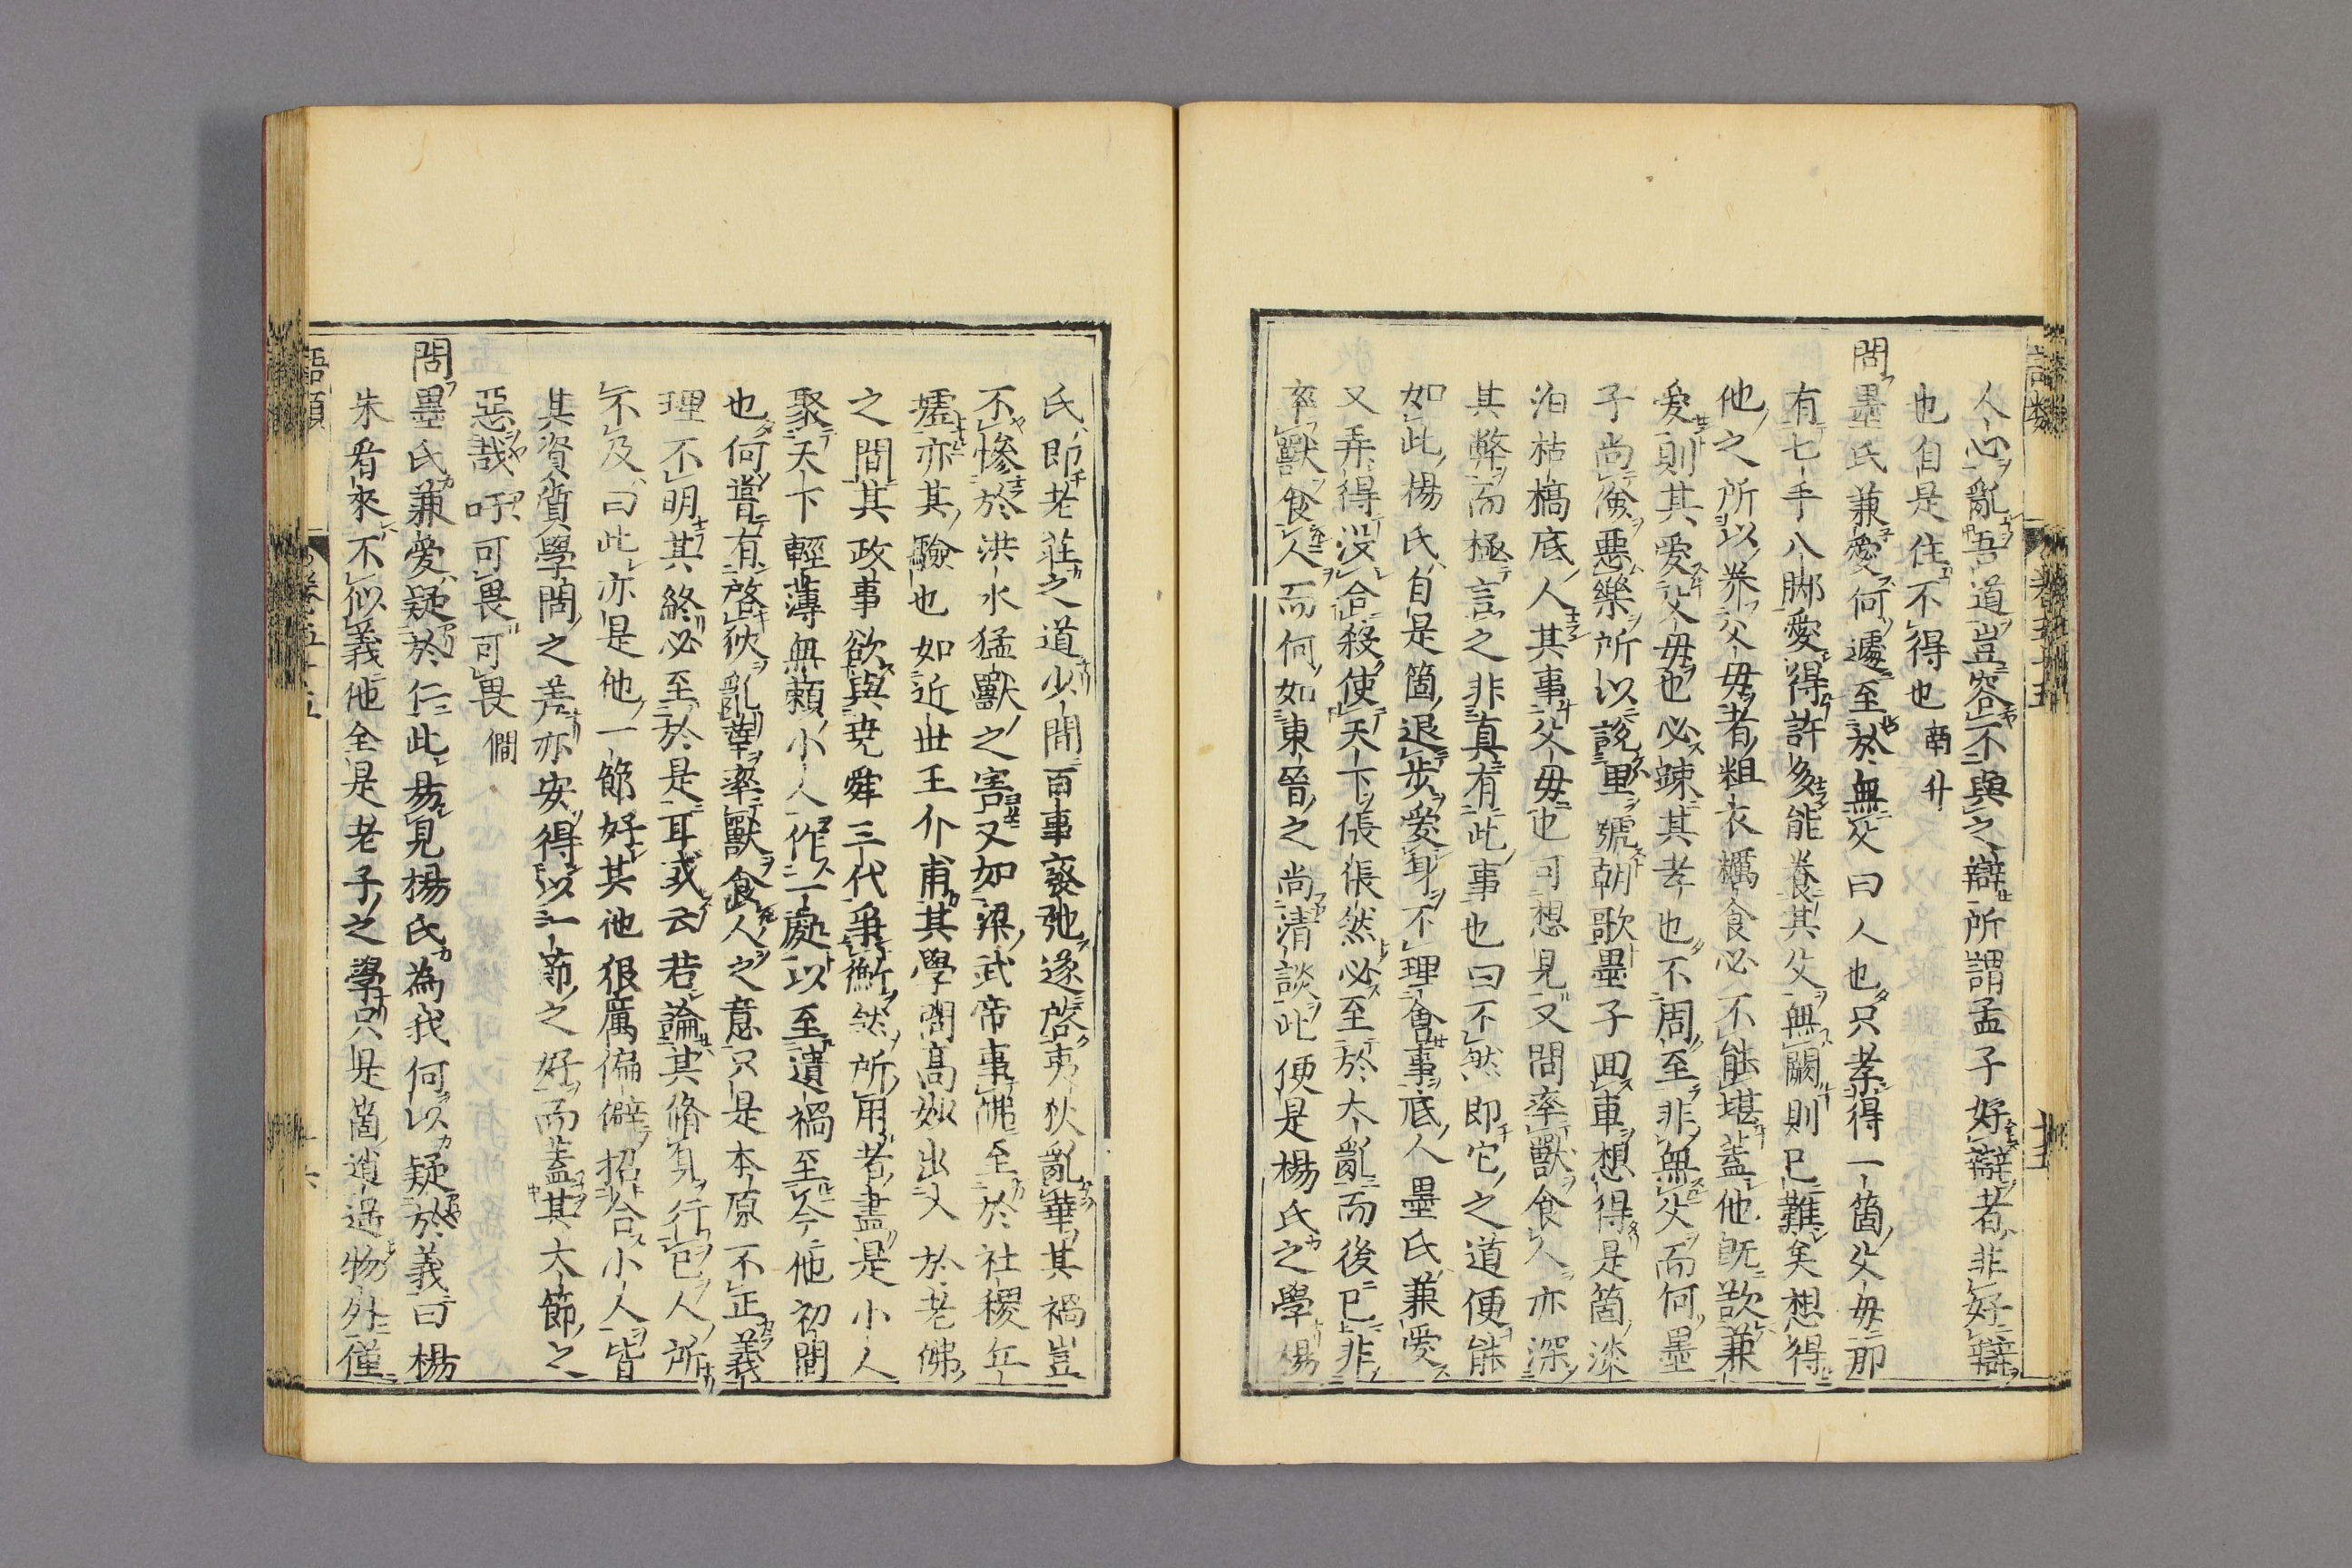 人心亂吾道豈容不與之辯所謂孟子好辯者非好辯
也自是住不得也南升
問墨氏兼愛何遽至於無父曰人也只孝得一箇父母那
有七手八脚愛得許多能養其父無闕則已難矣想得
他之所以養父母者粗衣糲食必不能堪蓋他既欲兼
愛則其愛父母也必疎其孝也不周至非無父而何墨
子尚儉惡樂所以說里號朝歌墨子回車想得是箇淡
泊枯槁底人其事父母也可想見又問率獸食人亦深
其弊而極言之非真有此事也曰不然即它之道便能
如此楊氏自是箇退步愛身不理會事底人墨氏兼愛
又弄得沒合殺使天下倀倀然必至於大亂而後已非
率獸食人而何如東晉之尚清談此便是楊氏之學楊
氏即老莊之道少間百事廢弛遂啓夷狄亂華其禍豈
不慘於洪水猛獸之害又如梁武帝事佛至於社稷丘
墟亦其驗也如近世王介甫其學問高妙出入於老佛
之間其政事欲與堯舜三代爭衡然所用者盡是小人
聚天下輕薄無賴小人作一處以至遺禍至今他初間
也何嘗有啓狄亂華率獸食人之意只是本原不正義
理不明其終必至於是耳或云若論其脩身行己人所
不及曰此亦是他一節好其他很厲偏僻招合小人皆
其資質學問之差亦安得以一節之好而蓋其大節之
惡哉吁可畏可畏僩
問墨氏兼愛疑於仁此易見楊氏為我何以疑於義曰楊
朱看來不似義他全是老子之學只是箇逍遙物外僅
語類 卷五十五 十六